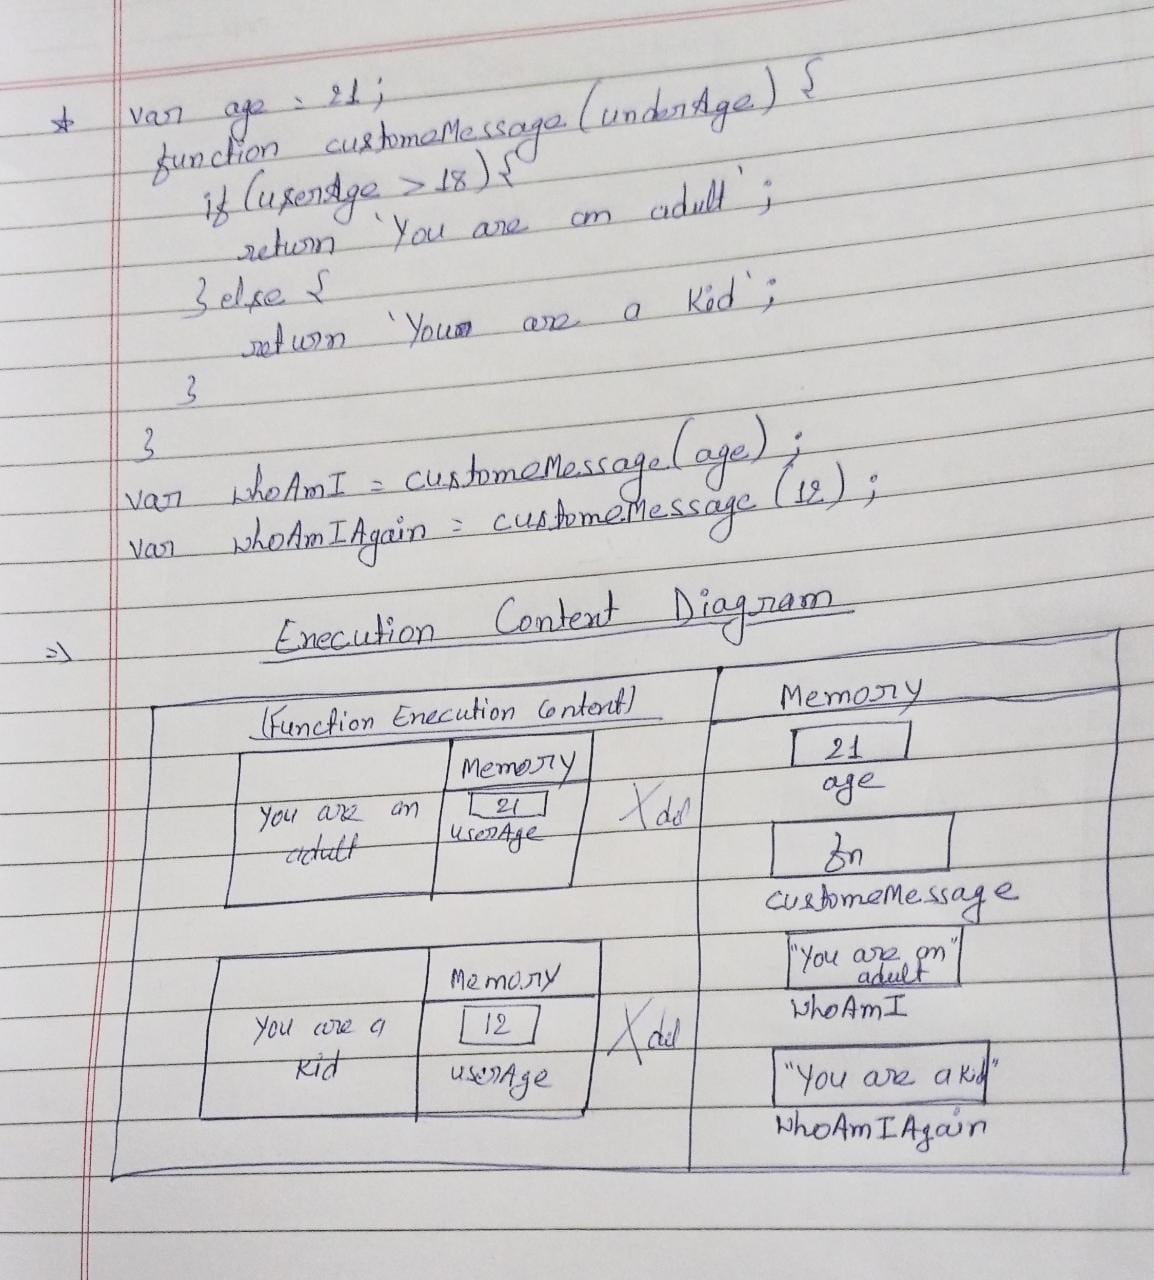 * var age = 21;
function customeMessage(underAge) {
if (userAge > 18) {
return 'You are an adult';
} else {
return 'You are a kid';
}
}
var whoAmI = customeMessage(age);
var whoAmIAgain = customeMessage(12);
=> Execution Context Diagram
(Function Execution Context)
Memory
You are an
adult
21
userAge
X del
Memory
You are a
kid
12
userAge
X del
Memory
21
age
fn
customeMessage
"You are an"
adult
whoAmI
"You are a kid"
whoAmIAgain